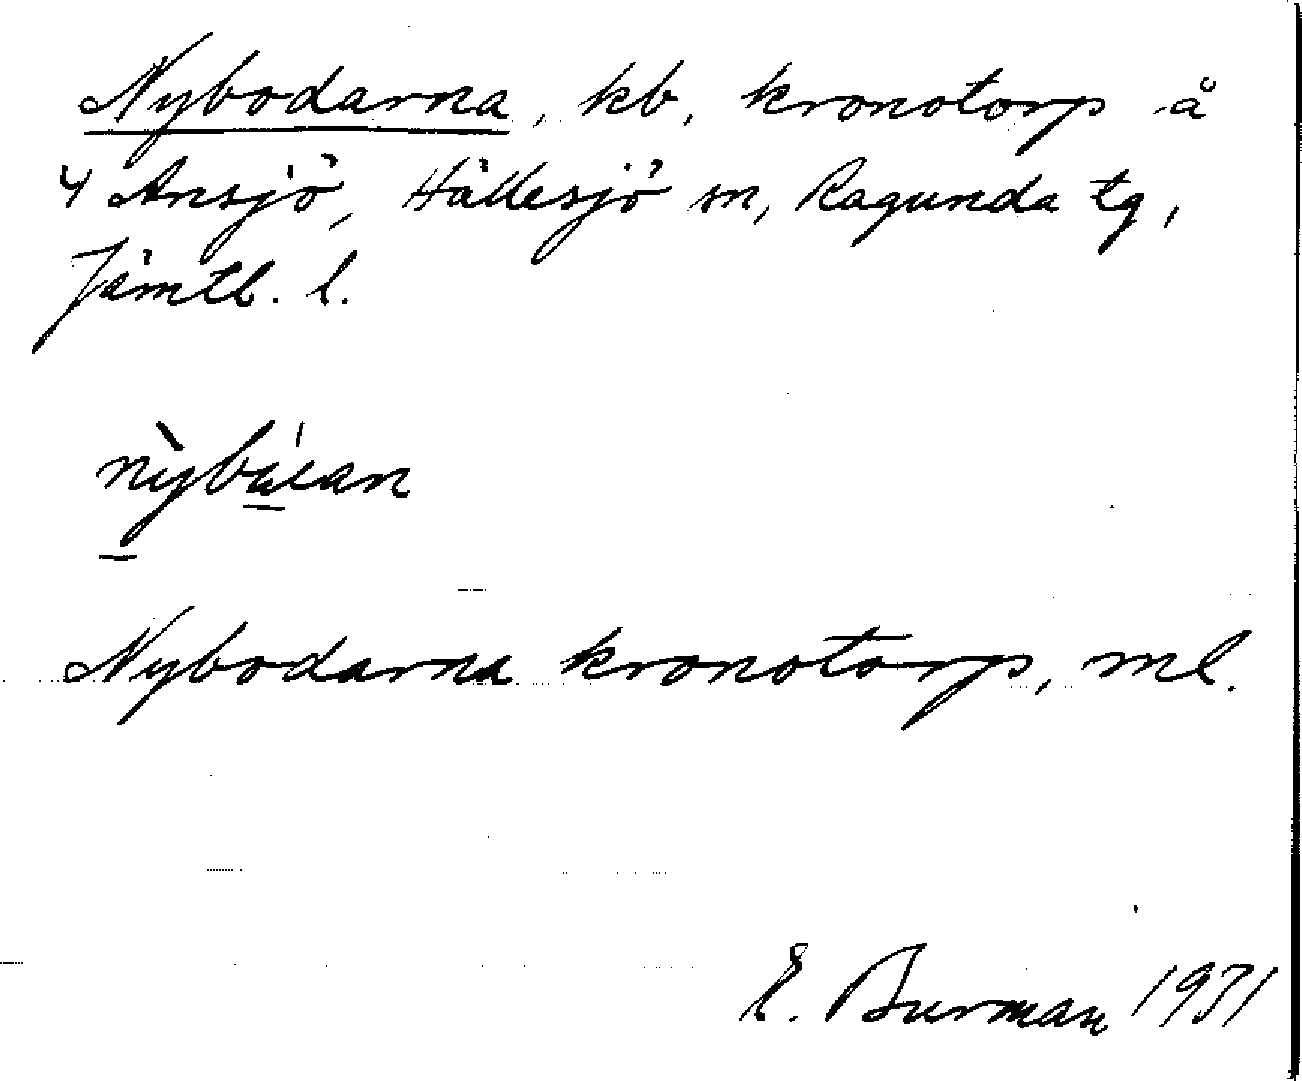 Nybodarna, kb, kronotorp å
4 Ansjö, Hällesjö sn, Ragunda tg,
Jämtl. l.
Nybodarna kronotorp, ml.
E. Burman 1931